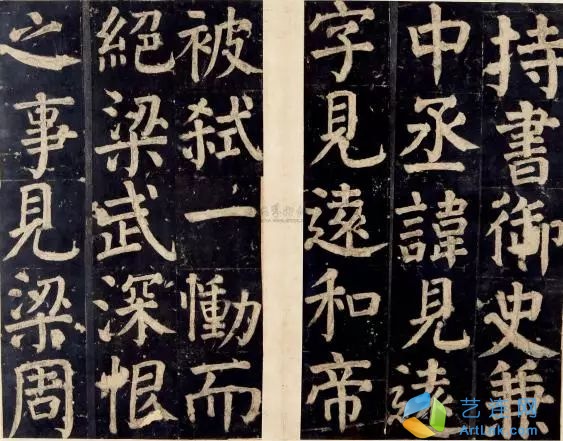 持書御史兼
中丞諱見遠
字見遠和帝
被弑一慟而
絕梁武深恨
之事見梁周